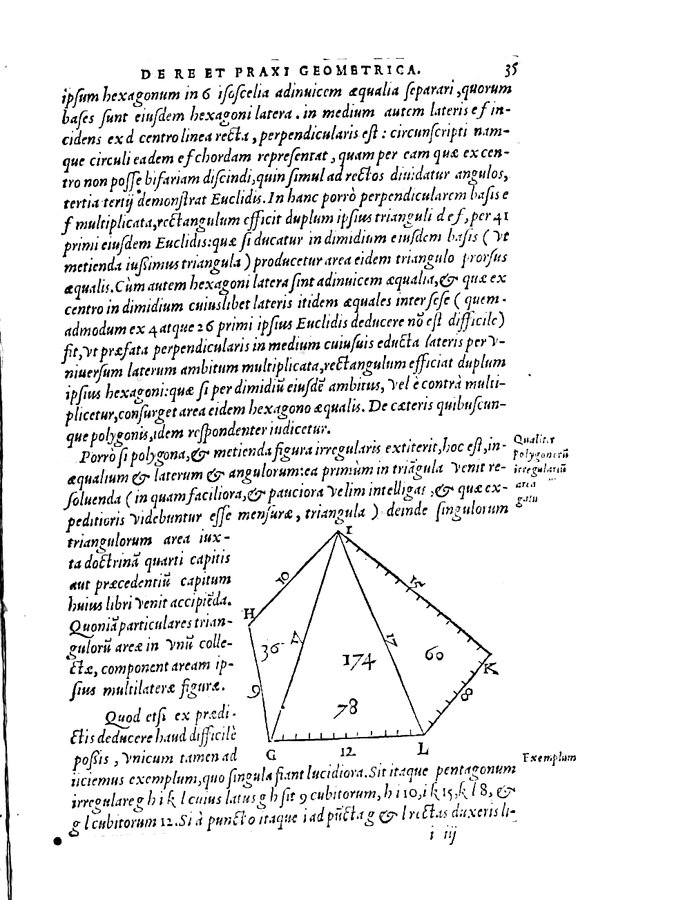 DE RE ET PRAXI GEOMETRICA. 35
ipsum hexagonum in 6 isoscelia adinuicem æqualia separari, quorum
bases sunt eiusdem hexagoni latera. in medium autem lateris e f in-
cidens ex d centro linea recta, perpendicularis est: circunscripti nam-
que circuli eadem e f chordam repræsentat, quam per eam quæ ex cen-
tro non posse bifariam discindi, quin simul ad rectos diuidatur angulos,
tertia tertij demonstrat Euclidis. In hanc porrò perpendicularem basis e
f multiplicata, rectangulum efficit duplum ipsius trianguli d e f, per 41
primi eiusdem Euclidis: quæ si ducatur in dimidium eiusdem basis (vt
metienda iussimus triangula) producetur area eidem triangulo prorsus
æqualis. Cùm autem hexagoni latera sint adinuicem æqualia, & quæ ex
centro in dimidium cuiuslibet lateris itidem æquales inter sese (quem-
admodum ex 4 atque 26 primi ipsius Euclidis deducere nō est difficile)
fit, vt præfata perpendicularis in medium cuiusuis educta lateris per v-
niuersum laterum ambitum multiplicata, rectangulum efficiat duplum
ipsius hexagoni: quæ si per dimidiū eiusdē ambitus, vel è contrà multi-
plicetur, consurget area eidem hexagono æqualis. De cæteris quibuscun-
que polygonis, idem respondenter iudicetur.
Porrò si polygona, & metienda figura irregularis extiterit, hoc est, in-
æqualium & laterum & angulorum: ea primùm in triāgula venit re-
soluenda (in quam faciliora, & pauciora velim intelligas, & quæ ex-
peditioris videbuntur esse mensuræ, triangula) deinde singulorum
Qualiter
polygonorū
irregulariū
area
triangulorum area iux-
ta doctrinā quarti capitis
aut præcedentiū capitum
huius libri venit accipiēda.
Quoniā particulares trian-
gulorū areæ in vnū colle-
ctæ, component aream ip-
sius multilateræ figuræ.
Quod etsi ex prædi-
ctis deducere haud difficilè
possis, vnicum tamen ad
I
10
15
H
36
A
17
174
60
K
9
78
8
G
12
L
iiciemus exemplum, quo singula fiant lucidiora. Sit itaque pentagonum
Exemplum
irregulare g h i k l cuius latus g h sit 9 cubitorum, h i 10, i k 15, k l 8, &
g l cubitorum 12. Si à puncto itaque i ad pūcta g & l rectas duxeris li-
i iij